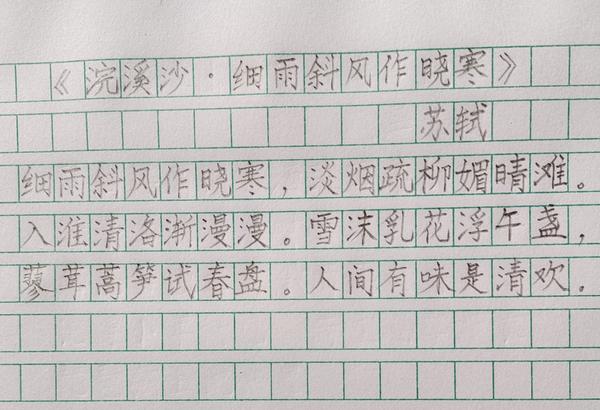 《浣溪沙·细雨斜风作晓寒》
苏轼
细雨斜风作晓寒，淡烟疏柳媚晴滩。
入淮清洛渐漫漫。雪沫乳花浮午盏，
蓼茸蒿笋试春盘。人间有味是清欢。